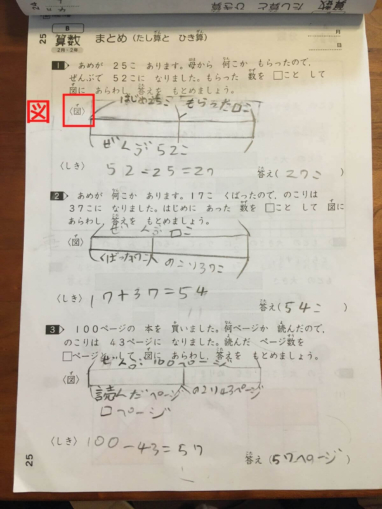 25
算数
まとめ(たし算と ひき算)
1 あめが 25こ あります。母から 何こか もらったので,
ぜんぶで 52こに なりました。もらった 数を □こと して
図に あらわし,答えを もとめましょう。
図
(図)
はじめ25こ もらった□こ
ぜんぶ52こ
(しき) 52-25=27
答え(27こ)
2 あめが 何こか あります。17こ くばったので,のこりは
37こに なりました。はじめに あった 数を □こと して 図に
あらわし,答えを もとめましょう。
(図)
ぜんぶ □こ
くばった17こ のこり37こ
(しき) 17+37=54
答え(54こ)
3 100ページの 本を 買いました。何ページか 読んだので,
のこりは 43ページに なりました。読んだ ページ数を
□ページと して 図に あらわし,答えを もとめましょう。
(図)
ぜんぶ100ページ
読んだページ のこり43ページ
□ページ
(しき) 100-43=57
答え(57ページ)
25